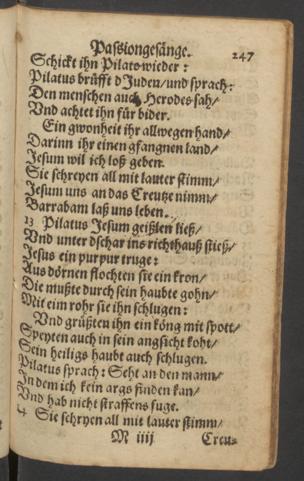 Passiongesänge.
247
Schickt ihn Pilato wieder:
Pilatus brüfft d Juden/und sprach:
Den menschen auch Herodes sah/
Vnd achtet ihn für bider.
Ein gwonheit ihr allwegen hand/
Darinn ihr einen gfangnen land/
Jesum wil ich loß geben.
Sie schreyen all mit lauter stimm/
Jesum uns an das Creutze nimm/
Barrabam laß uns leben.
13 Pilatus Jesum geißlen ließ/
Vnd unter dschar ins richthauß stieß/
Jesus ein purpur truge:
Aus dörnen flochten sie ein kron/
Die mußte durch sein haubte gohn/
Mit eim rohr sie ihn schlugen:
Vnd grüßten ihn ein köng mit spott/
Speyten auch in sein angsicht koht/
Sein heiligs haubt auch schlugen.
Pilatus sprach: Seht an den mann/
In dem ich kein args finden kan/
Vnd hab nicht straffens fuge.
14 Sie schryen all mit lauter stimm/
M iiij
Creu-